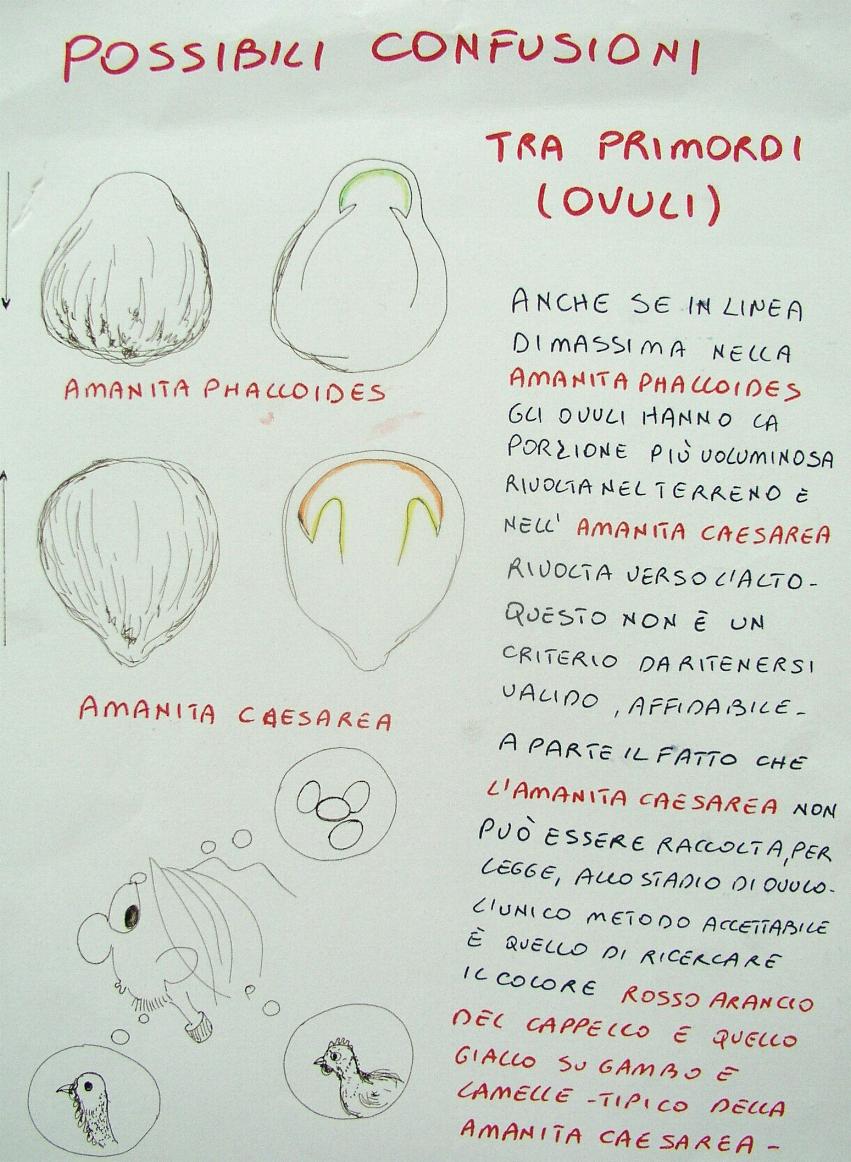 POSSIBILI CONFUSIONI
TRA PRIMORDI
(OVULI)
AMANITA PHALLOIDES
AMANITA CAESAREA
ANCHE SE IN LINEA
DI MASSIMA NELLA
AMANITA PHALLOIDES
GLI OVULI HANNO LA
PORZIONE PIÙ VOLUMINOSA
RIVOLTA NEL TERRENO E
NELL' AMANITA CAESAREA
RIVOLTA VERSO L'ALTO-
QUESTO NON È UN
CRITERIO DA RITENERSI
VALIDO, AFFIDABILE-
A PARTE IL FATTO CHE
L'AMANITA CAESAREA NON
PUÒ ESSERE RACCOLTA, PER
LEGGE, ALLO STADIO DI OVULO-
L'UNICO METODO ACCETTABILE
È QUELLO DI RICERCARE
IL COLORE ROSSO ARANCIO
DEL CAPPELLO E QUELLO
GIALLO SU GAMBO E
LAMELLE - TIPICO DELLA
AMANITA CAESAREA-